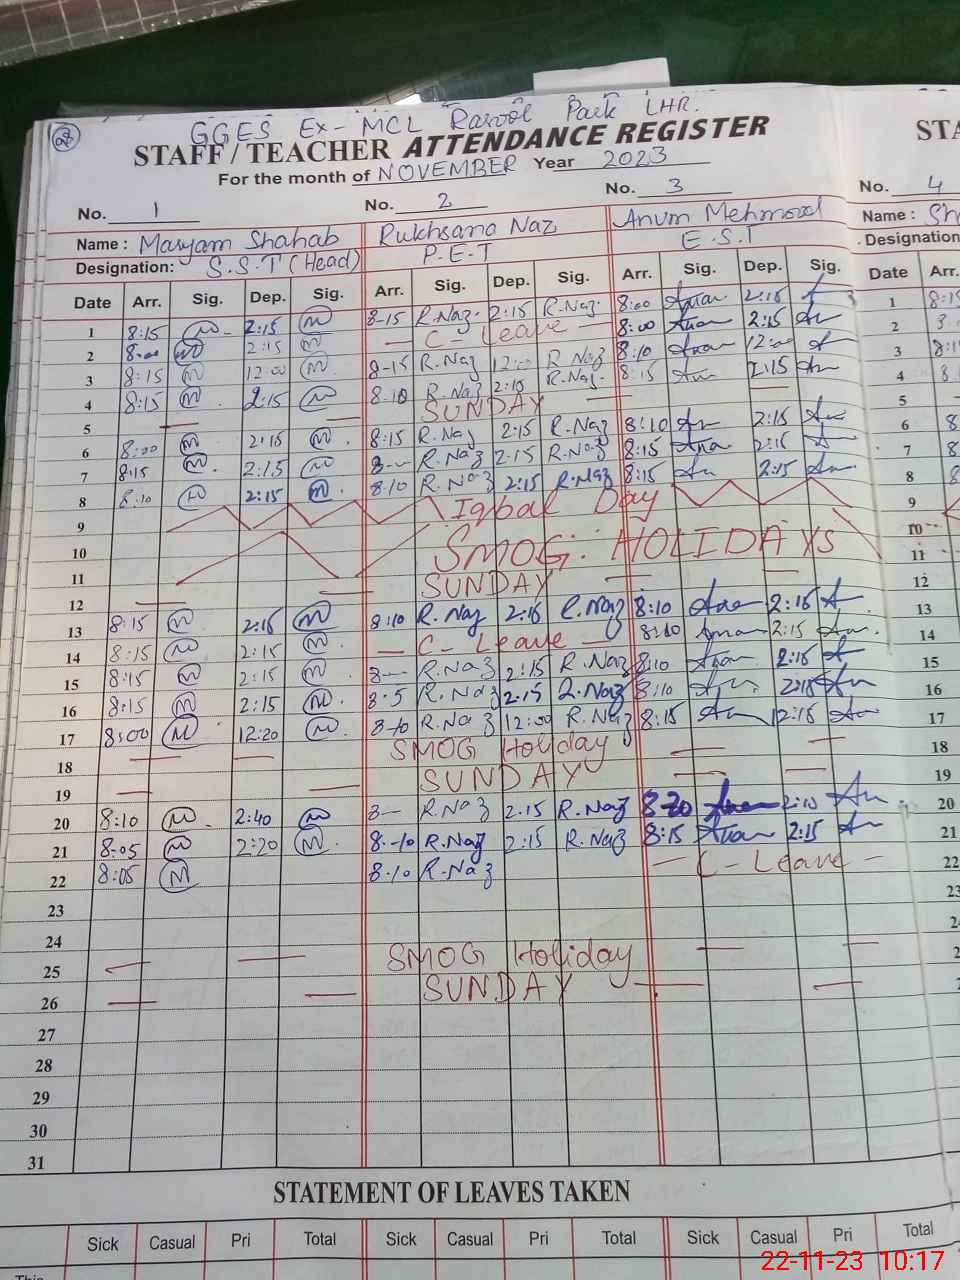 28
GGES Ex-MCL Rasool Park LHR.
STAFF / TEACHER ATTENDANCE REGISTER STA
For the month of NOVEMBER Year 2023
No. 1 No. 2 No. 3 No. 4
Name : Maryam Shahab Rukhsana Naz Anum Mehmood Name : Sh
Designation: S.S.T (Head) P.E.T E.S.T Designation
Date Arr. Sig. Dep. Sig. Arr. Sig. Dep. Sig. Arr. Sig. Dep. Sig. Date Arr.
1 8:15 2:15 8-15 R.Naz. 2:15 R.Naz. 8:00 2:15 1
2 8:00 2:15 - C - Leave - 8:00 2:15 2
3 8:15 12:00 8-15 R.Naz 12:00 R.Naz 8:10 12:00 3
4 8:15 2:15 8.10 R.Naz 2:10 R.Naz. 8:15 2:15 4
5 SUNDAY 5
6 8:00 2:15 8:15 R.Naz 2:15 R.Naz 8:10 2:15 6
7 8:15 2:15 8-- R.Naz 2.15 R.Naz 8:15 2:15 7
8 8:10 2:15 8.10 R.Naz 2:15 R.Naz 8:15 2:15 8
9 Iqbal Day 9
10 SMOG: HOLIDAYS 10
11 11
12 SUNDAY 12
13 8:15 2:15 8:10 R.Naz 2:15 R.Naz 8:10 2:15 13
14 8:15 2:15 - C - Leave - 8:10 2:15 14
15 8:15 2:15 8-- R.Naz 2:15 R.Naz 8:10 2:15 15
16 8:15 2:15 8.5 R.Naz 2.15 R.Naz 8:10 2:15 16
17 8:00 12:20 8-10 R.Naz 12:00 R.Naz 8:15 12:15 17
18 SMOG Holiday 18
19 SUNDAY 19
20 8:10 2:40 8-- R.Naz 2.15 R.Naz 8:20 2:10 20
21 8:05 2:20 8-10 R.Naz 2:15 R.Naz 8:15 2:15 21
22 8:05 8.10 R.Naz - C - Leave - 22
23 23
24
25 SMOG Holiday
26 SUNDAY
27
28
29
30
31
STATEMENT OF LEAVES TAKEN
Sick Casual Pri Total Sick Casual Pri Total Sick Casual Pri Total
This
22-11-23 10:17